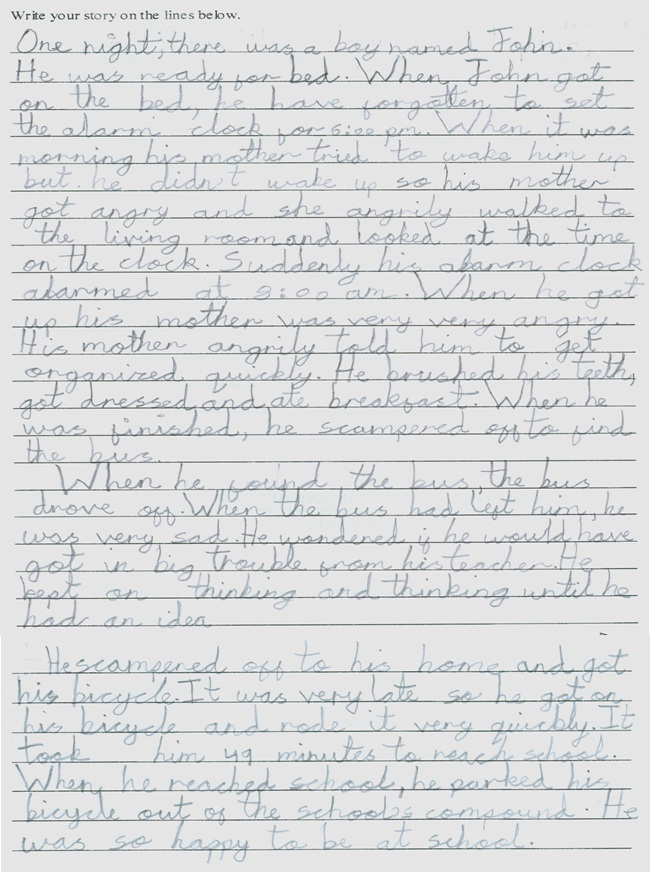 Write your story on the lines below.
One night, there was a boy named John.
He was ready for bed. When John got
on the bed, he have forgotten to set
the alarm clock for 5:00 pm. When it was
morning his mother tried to wake him up
but he didn't wake up so his mother
got angry and she angrily walked to
the living room and looked at the time
on the clock. Suddenly his alarm clock
alarmed at 8:00 am. When he got
up his mother was very very angry.
His mother angrily told him to get
organized quickly. He brushed his teeth,
got dressed, and ate breakfast. When he
was finished, he scampered off to find
the bus.
When he found the bus, the bus
drove off. When the bus had left him, he
was very sad. He wondered if he would have
got in big trouble from his teacher. He
kept on thinking and thinking until he
had an idea
He scampered off to his home and got
his bicycle. It was very late so he got on
his bicycle and rode it very quickly. It
took him 49 minutes to reach school.
When he reached school, he parked his
bicycle out of the school's compound. He
was so happy to be at school.